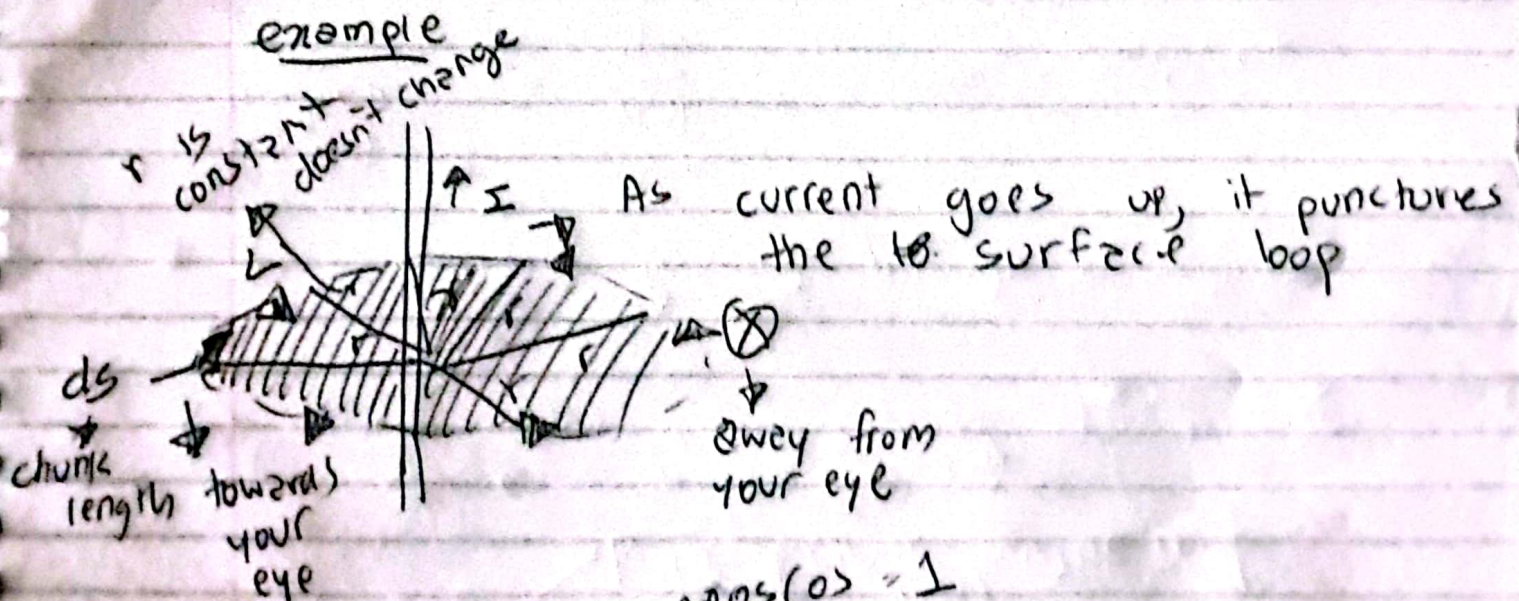 example
r is
constant
doesn't change
↑ I
As current goes up, it punctures
the surface loop
r
r
r
r
ds
chunk
length
towards
your
eye
away from
your eye
cos(0) = 1